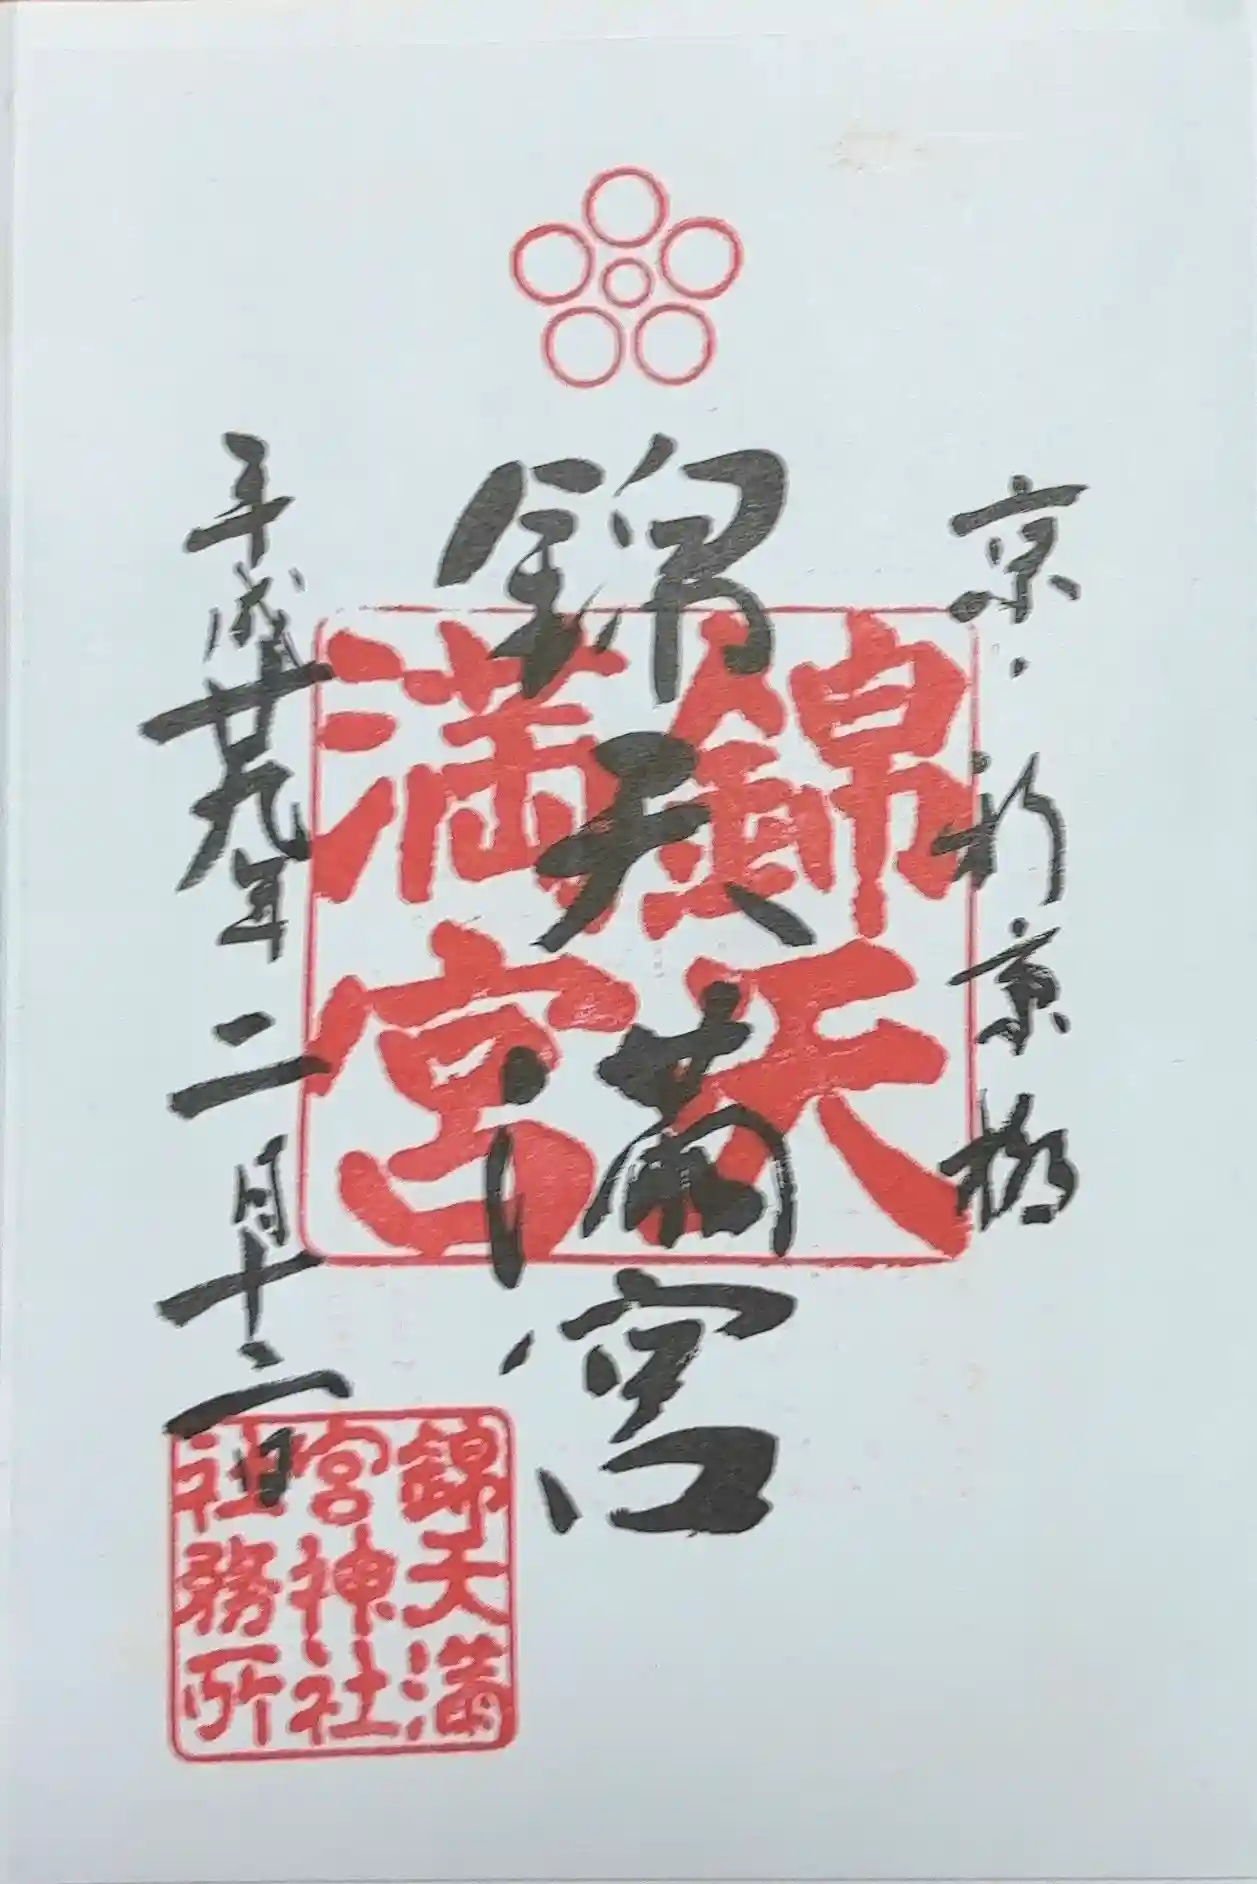 京・新京極
錦天満宮
錦天
満宮
平成廿九年二月十二日
錦天満
宮神社
社務所